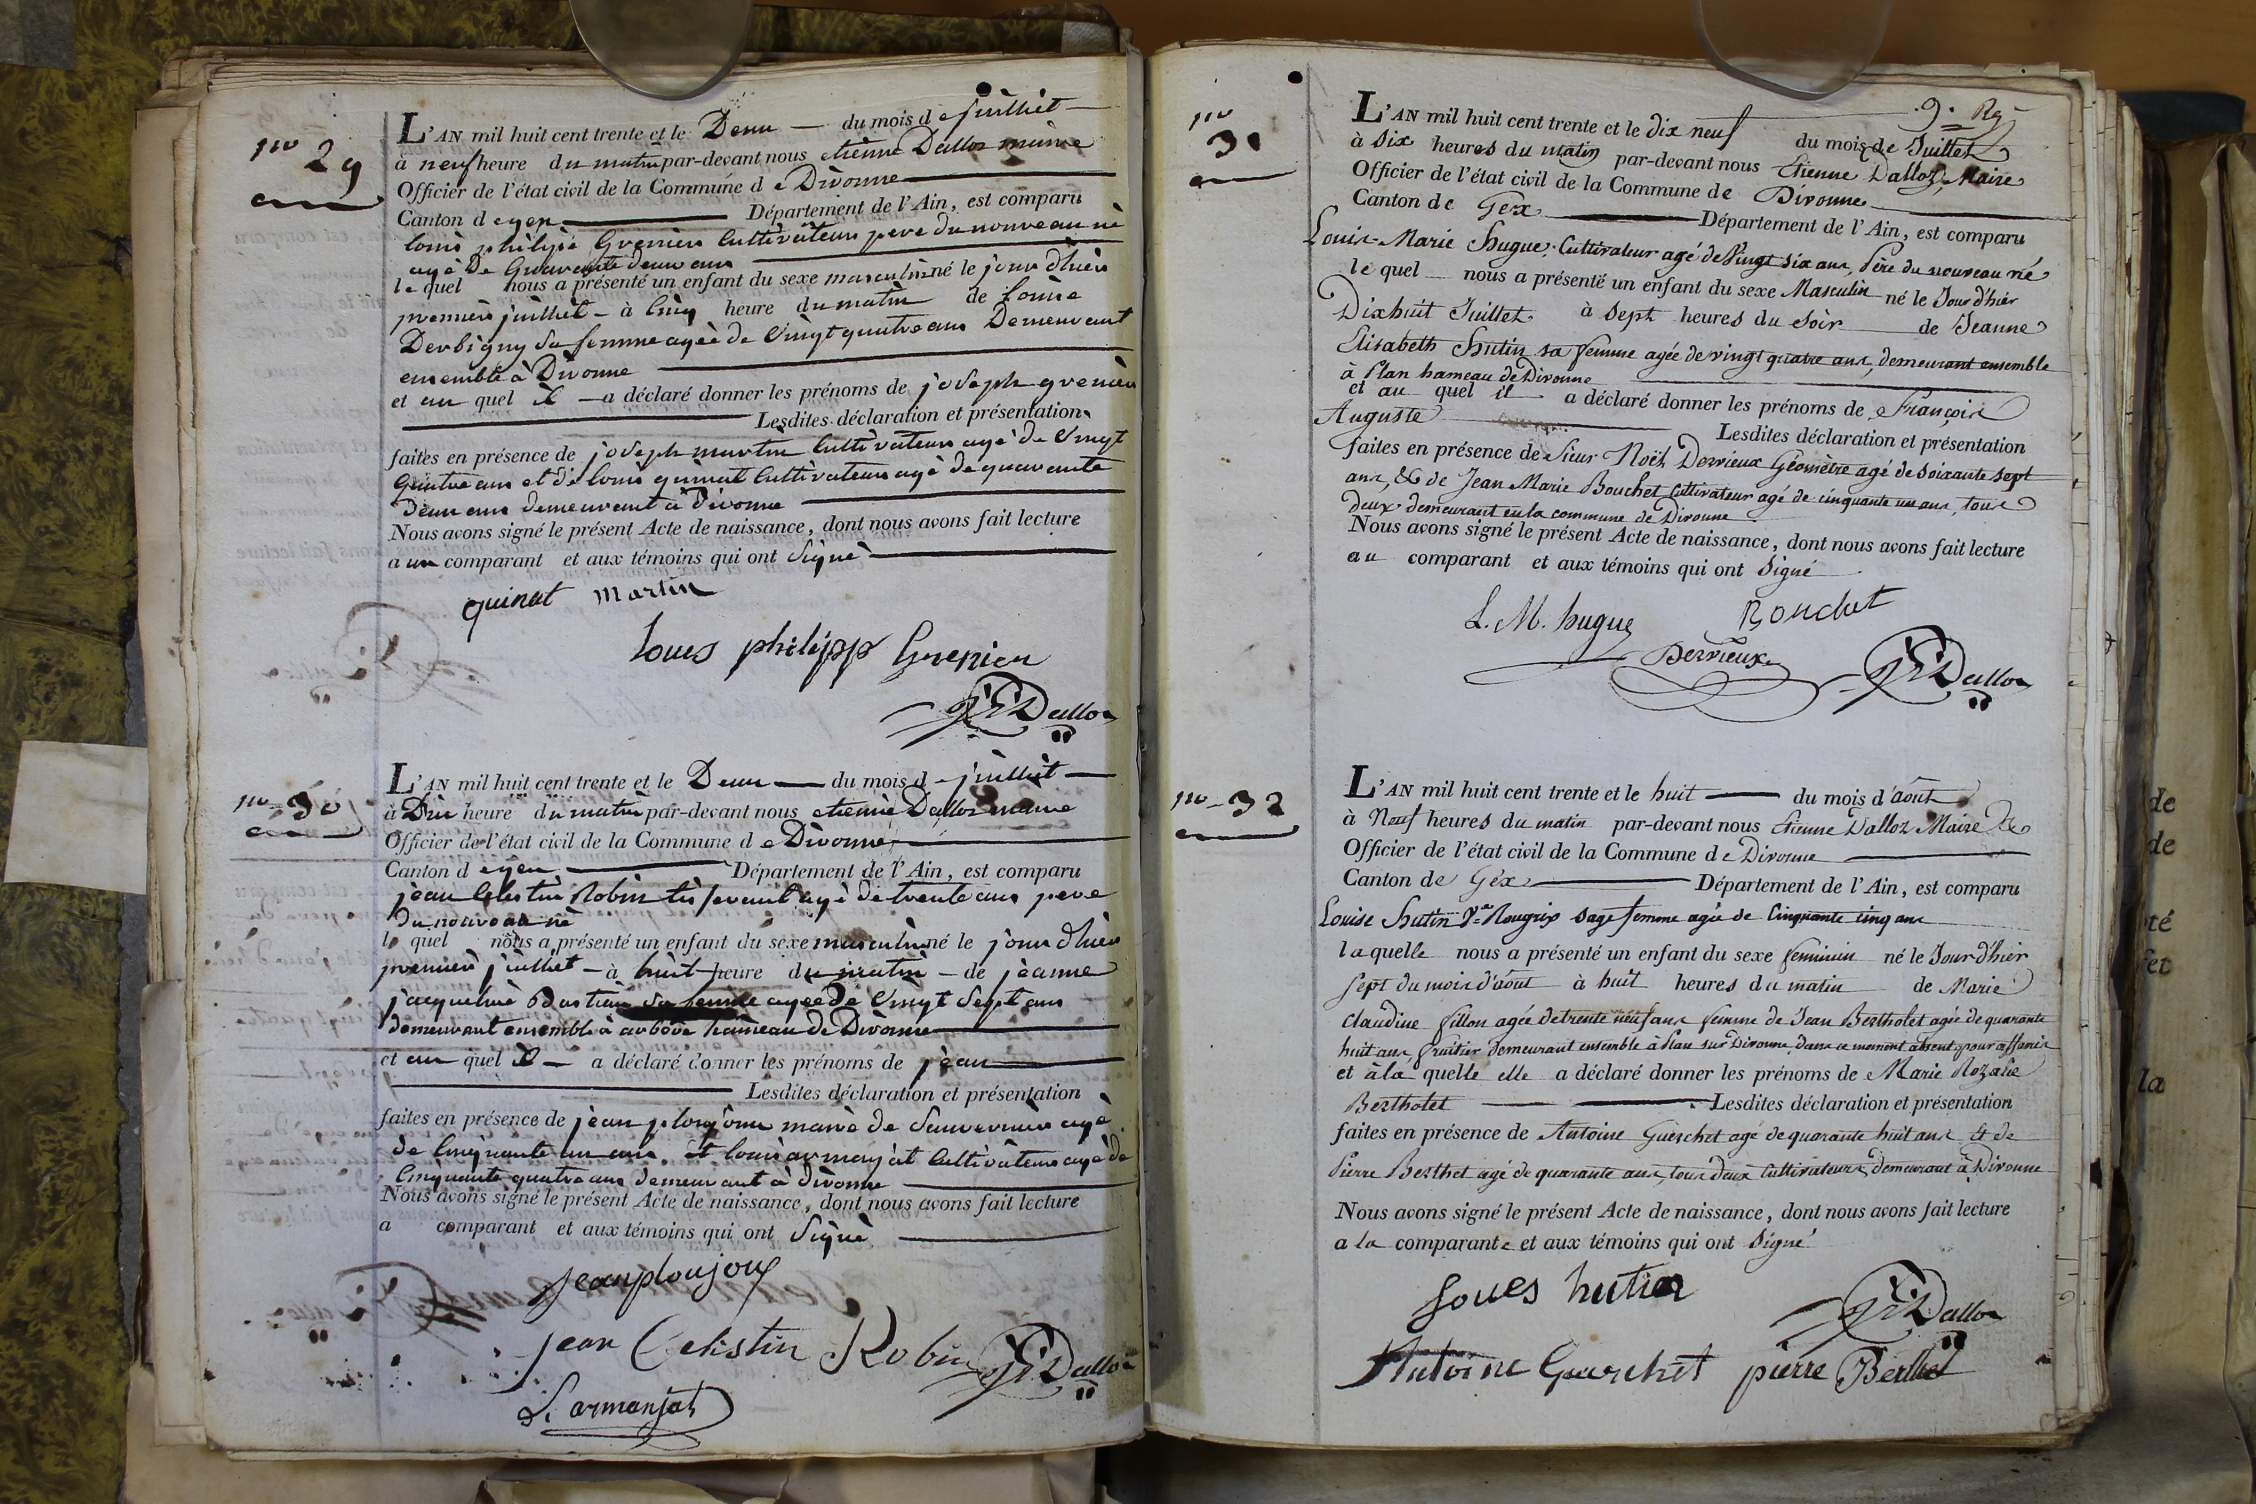 no 29
L'AN mil huit cent trente et le Deux du mois de juilliet
à neuf heure du matin par-devant nous etienne Dalloz maire
Officier de l'état civil de la Commune de Divonne
Canton de gex Département de l'Ain, est comparu
louis philipe Grenier Cultivateur pere du nouveau né
agé De Quarente deux ans
le quel nous a présenté un enfant du sexe masculin né le jour dhier
premier juilliet à Cinq heure du matin de louise
Derbigny sa femme agée de Vingt quatre ans Demeurant
ensemble à Divonne
et au quel il a déclaré donner les prénoms de joseph grenier
Lesdites déclaration et présentation
faites en présence de joseph martin Cultivateur agé de Vingt
Quatre ans et de louis quinat Cultivateur agé de quarante
Deux ans demeurant à Divonne
Nous avons signé le présent Acte de naissance, dont nous avons fait lecture
a un comparant et aux témoins qui ont Signé
quinat martin
loues philipp Grenier
Dalloz
no 30
L'AN mil huit cent trente et le Deux du mois de juilliet
à Dix heure du matin par-devant nous etienne Dalloz maire
Officier de l'état civil de la Commune de Divonne
Canton de gex Département de l'Ain, est comparu
jean Celestin Robin tisserant agé de trente ans pere
Du nouveau né
le quel nous a présenté un enfant du sexe masculin né le jour dhier
premier juilliet à huit heure du matin de jeanne
jacqueline Bastian sa femme agée de Vingt Sept ans
demeurant ensemble à arbere hameau de Divonne
et au quel il a déclaré donner les prénoms de jean
Lesdites déclaration et présentation
faites en présence de jean plonjoux maire de Sauvernier agé
de Cinquante un ans et louis armanjat Cultivateur agé de
Cinquante quatre ans demeurant à divonne
Nous avons signé le présent Acte de naissance, dont nous avons fait lecture
a comparant et aux témoins qui ont Signé
jean ploujoux
jean Celistin Robin Dalloz
L. armanjat
9. Rg
no 31
L'AN mil huit cent trente et le dix neuf du mois de Juillet
à Six heures du matin par-devant nous Etienne Dalloz, Maire
Officier de l'état civil de la Commune de Divonne
Canton de Gex Département de l'Ain, est comparu
Louis Marie Hugue, Cultivateur agé de Vingt six ans, Père du nouveau né
le quel nous a présenté un enfant du sexe Masculin né le Jour d'hier
Dixhuit Juillet à Sept heures du Soir de Jeanne
Elisabeth Hutin sa femme agée de vingt quatre ans, demeurant ensemble
à Plan hameau de Divonne
et au quel il a déclaré donner les prénoms de François
Auguste Lesdites déclaration et présentation
faites en présence de Sieur Noël Derrieux Géomètre agé de Soixante sept
ans, & de Jean Marie Bouchet Cultivateur agé de cinquante un ans, tous
deux demeurant en la commune de Divonne
Nous avons signé le présent Acte de naissance, dont nous avons fait lecture
au comparant et aux témoins qui ont Signé
L. M. hugue Bouchet
Derrieux Dalloz
no 32
L'AN mil huit cent trente et le huit du mois d'août
à Neuf heures du matin par-devant nous Etienne Dalloz Maire &
Officier de l'état civil de la Commune de Divonne
Canton de Gex Département de l'Ain, est comparu
Louise Hutin Ve Rougrix sage femme agée de Cinquante cinq ans
laquelle nous a présenté un enfant du sexe feminin né le Jour d'hier
Sept du mois d'août à huit heures du matin de Marie
Claudine fillon agée de trente neuf ans femme de Jean Bertholet agée de quarante
huit ans, fruitier demeurant ensemble à Plan sur Divonne, dans ce moment absent pour affaires
et à la quelle elle a déclaré donner les prénoms de Marie Rozalie
Bertholet Lesdites déclaration et présentation
faites en présence de Antoine Guerchet agé de quarante huit ans & de
Pierre Berthet agé de quarante ans, tous deux Cultivateurs demeurant à Divonne
Nous avons signé le présent Acte de naissance, dont nous avons fait lecture
a la comparante et aux témoins qui ont Signé
Loues hutin Dalloz
Antoine Guerchet pierre Berthet